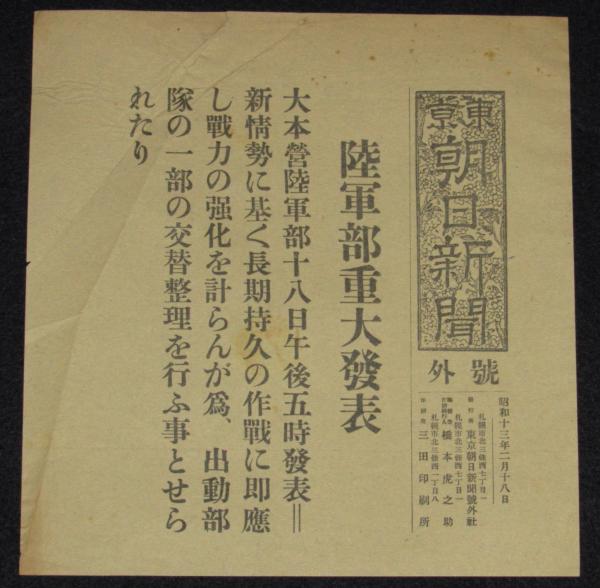 東京
朝日新聞
號外
昭和十三年二月十八日
札幌市北三條西七丁目一
發行所 東京朝日新聞號外社
札幌市北三條西七丁目一
橋本虎之助
札幌市北三條西一丁目八
印刷所 三田印刷所
陸軍部重大發表
大本營陸軍部十八日午後五時發表＝
新情勢に基く長期持久の作戰に即應
し戰力の强化を計らんが爲、出動部
隊の一部の交替整理を行ふ事とせら
れたり